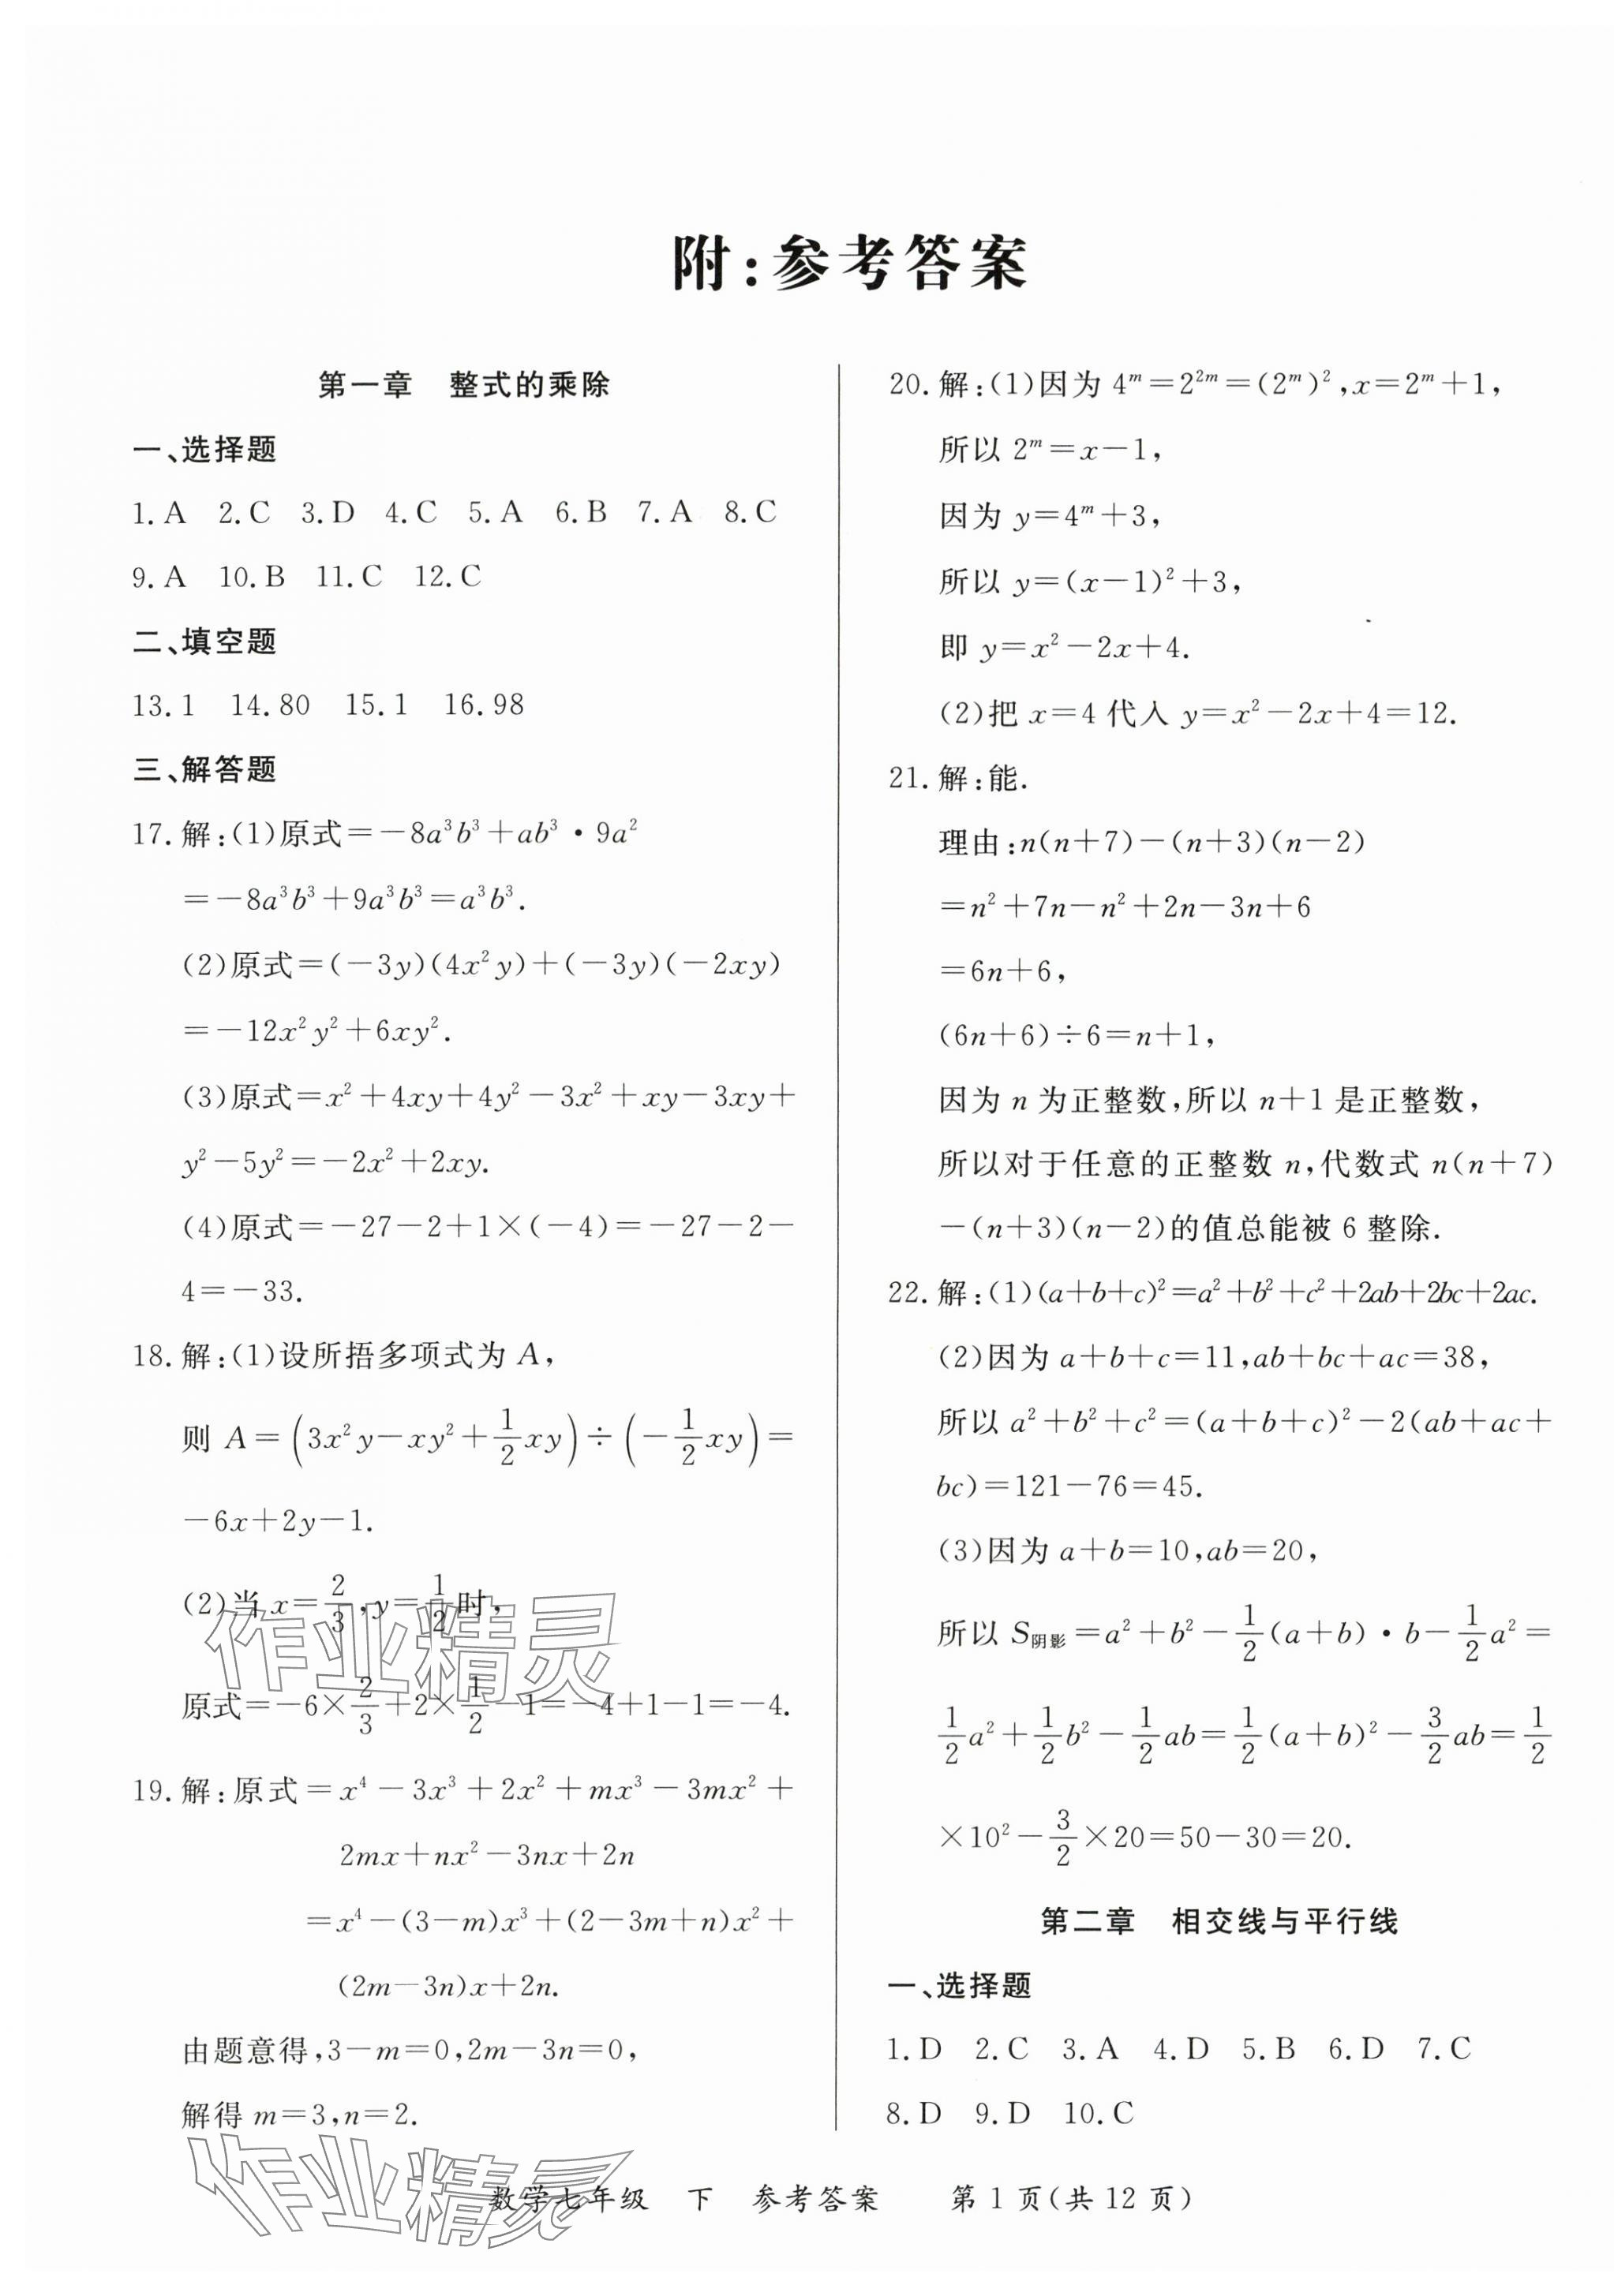 附:参考答案
第一章 整式的乘除
一、选择题
1.A 2.C 3.D 4.C 5.A 6.B 7.A 8.C
9.A 10.B 11.C 12.C
二、填空题
13.1 14.80 15.1 16.98
三、解答题
17.解:(1)原式=-8a³b³+ab³·9a²
=-8a³b³+9a³b³=a³b³.
(2)原式=(-3y)(4x²y)+(-3y)(-2xy)
=-12x²y²+6xy².
(3)原式=x²+4xy+4y²-3x²+xy-3xy+
y²-5y²=-2x²+2xy.
(4)原式=-27-2+1×(-4)=-27-2-
4=-33.
18.解:(1)设所捂多项式为A,
则A=(3x²y-xy²+1/2xy)÷(-1/2xy)=
-6x+2y-1.
(2)当x=2/3,y=1/2时,
原式=-6×2/3+2×1/2-1=-4+1-1=-4.
19.解:原式=x⁴-3x³+2x²+mx³-3mx²+
2mx+nx²-3nx+2n
=x⁴-(3-m)x³+(2-3m+n)x²+
(2m-3n)x+2n.
由题意得,3-m=0,2m-3n=0,
解得m=3,n=2.
20.解:(1)因为4ᵐ=2²ᵐ=(2ᵐ)²,x=2ᵐ+1,
所以2ᵐ=x-1,
因为y=4ᵐ+3,
所以y=(x-1)²+3,
即y=x²-2x+4.
(2)把x=4代入y=x²-2x+4=12.
21.解:能.
理由:n(n+7)-(n+3)(n-2)
=n²+7n-n²+2n-3n+6
=6n+6,
(6n+6)÷6=n+1,
因为n为正整数,所以n+1是正整数,
所以对于任意的正整数n,代数式n(n+7)
-(n+3)(n-2)的值总能被6整除.
22.解:(1)(a+b+c)²=a²+b²+c²+2ab+2bc+2ac.
(2)因为a+b+c=11,ab+bc+ac=38,
所以a²+b²+c²=(a+b+c)²-2(ab+ac+
bc)=121-76=45.
(3)因为a+b=10,ab=20,
所以S阴影=a²+b²-1/2(a+b)·b-1/2a²=
1/2a²+1/2b²-1/2ab=1/2(a+b)²-3/2ab=1/2
×10²-3/2×20=50-30=20.
第二章 相交线与平行线
一、选择题
1.D 2.C 3.A 4.D 5.B 6.D 7.C
8.D 9.D 10.C
数学七年级 下 参考答案 第1页(共12页)
作业精灵
作业精灵